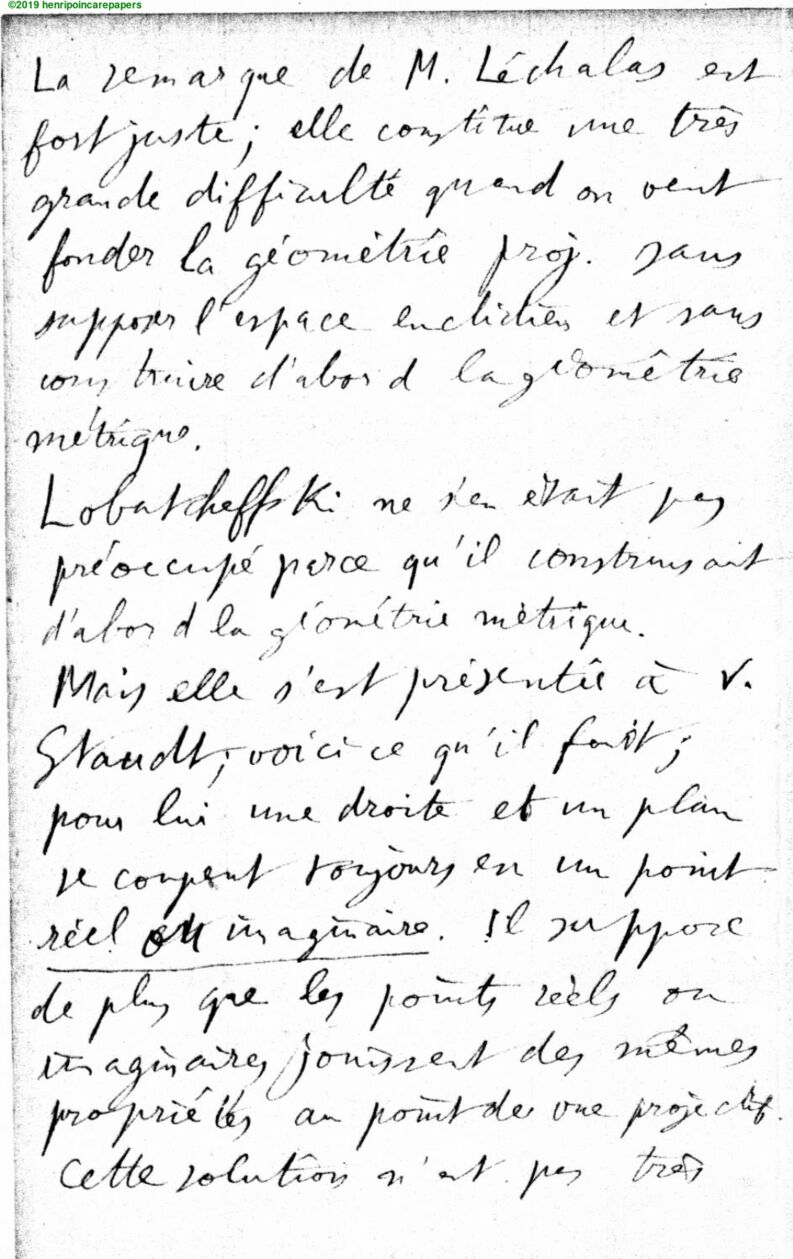 ©2019 henripoincarepapers
La remarque de M. Léchalas est
fort juste; elle constitue une très
grande difficulté quand on veut
fonder la géométrie proj. sans
supposer l'espace euclidien et sans
construire d'abord la géométrie
métrique.
Lobatcheffski ne s'en était pas
préoccupé parce qu'il construisait
d'abord la géométrie métrique.
Mais elle s'est présentée à v.
Staudt; voici ce qu'il fait;
pour lui une droite et un plan
se coupent toujours en un point
réel ou imaginaire. Il suppose
de plus que les points réels ou
imaginaires jouissent des mêmes
propriétés au point de vue project.
Cette solution n'est pas très